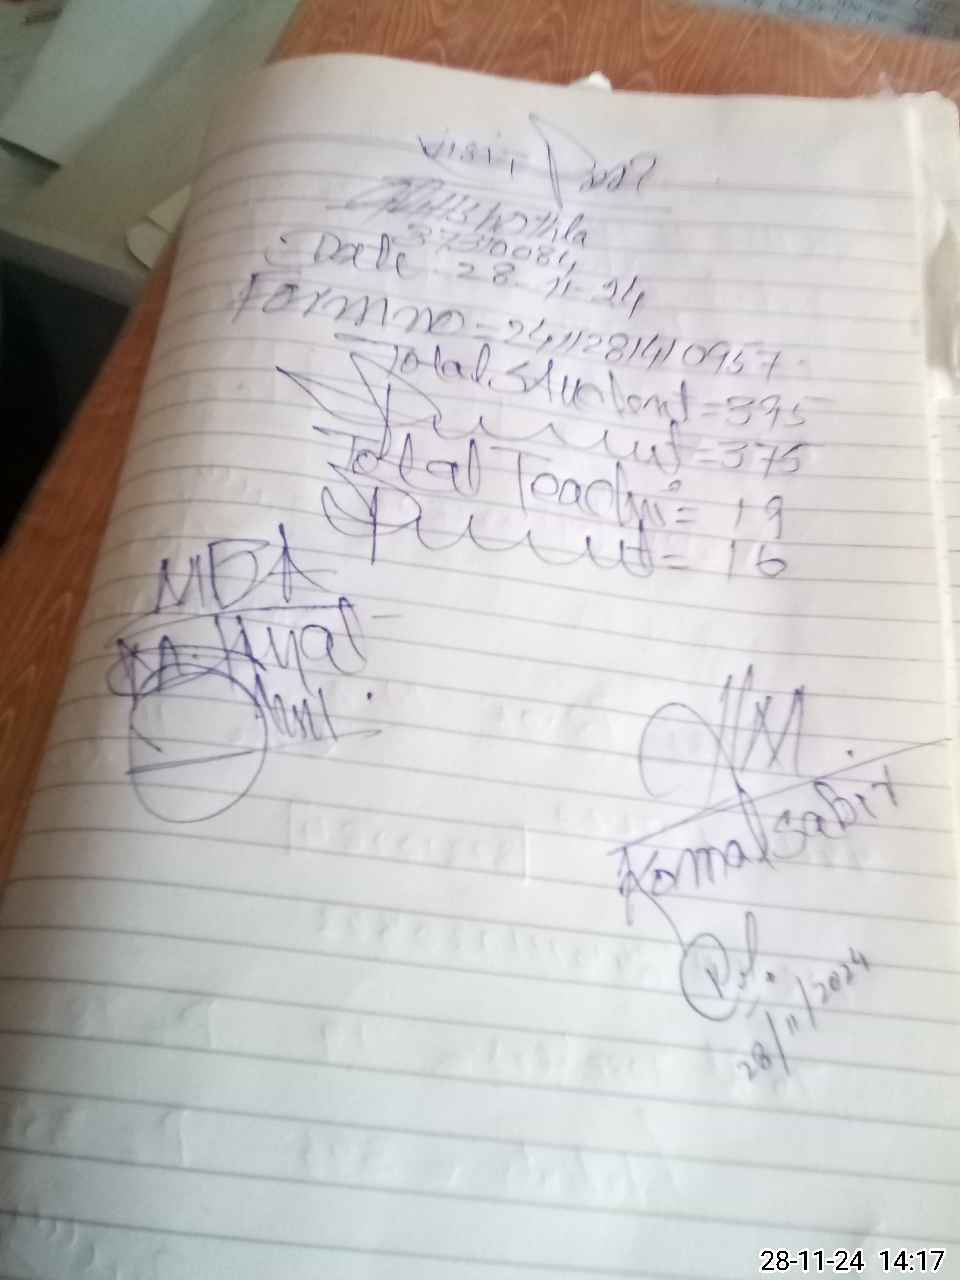 Visit
37370084
Date 28-11-24
Form no - 2411281410957
Total Student = 395
Present = 375
Total Teacher = 19
Present = 16
MEA
M.
Komal Sabir
28/11/2024
28-11-24 14:17